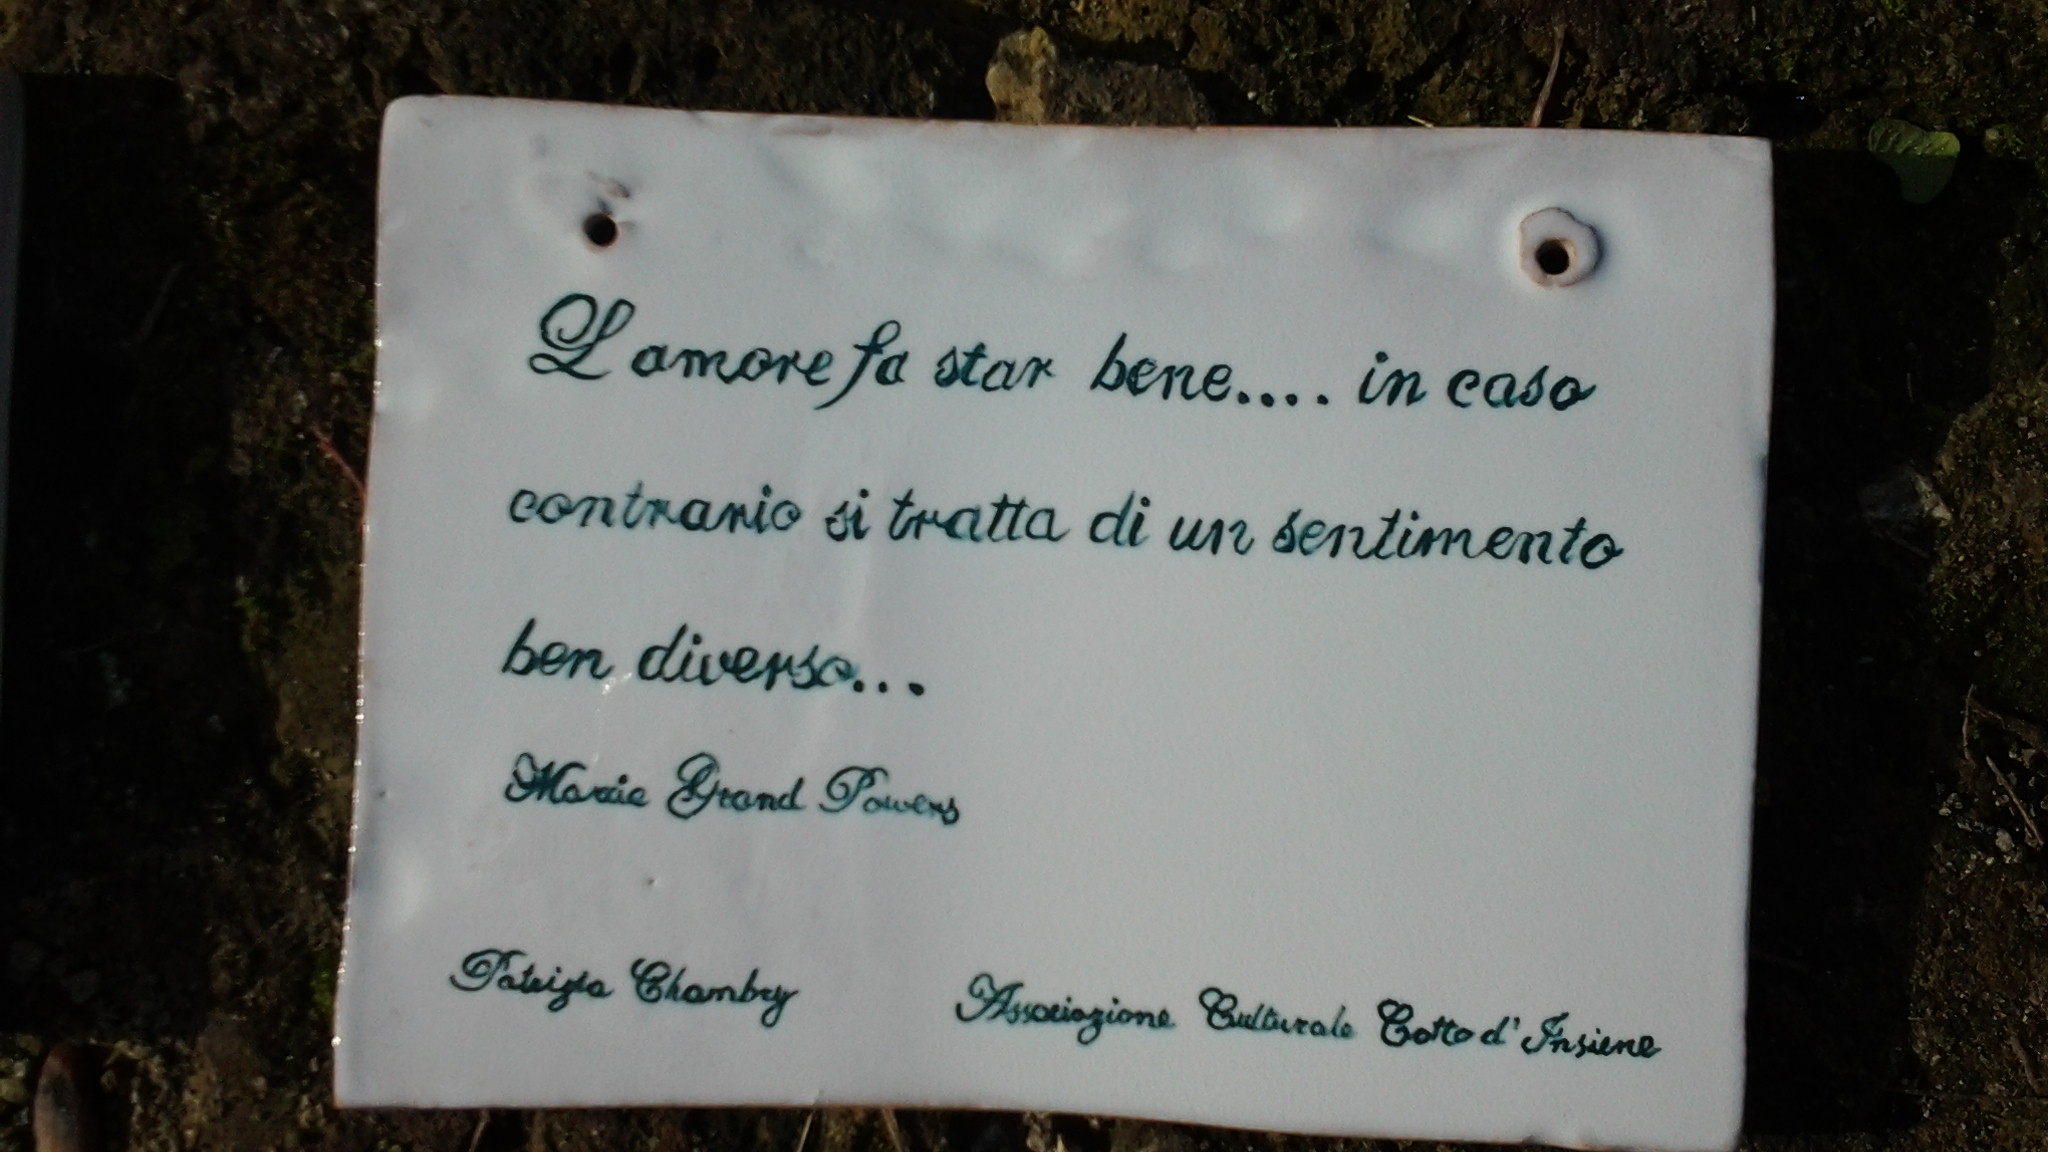 L amore fa star bene.... in caso
contrario si tratta di un sentimento
ben diverso...
Maxie Grand Powers
Patrizia Chambry
Associazione Culturale Cotto d' Insiene